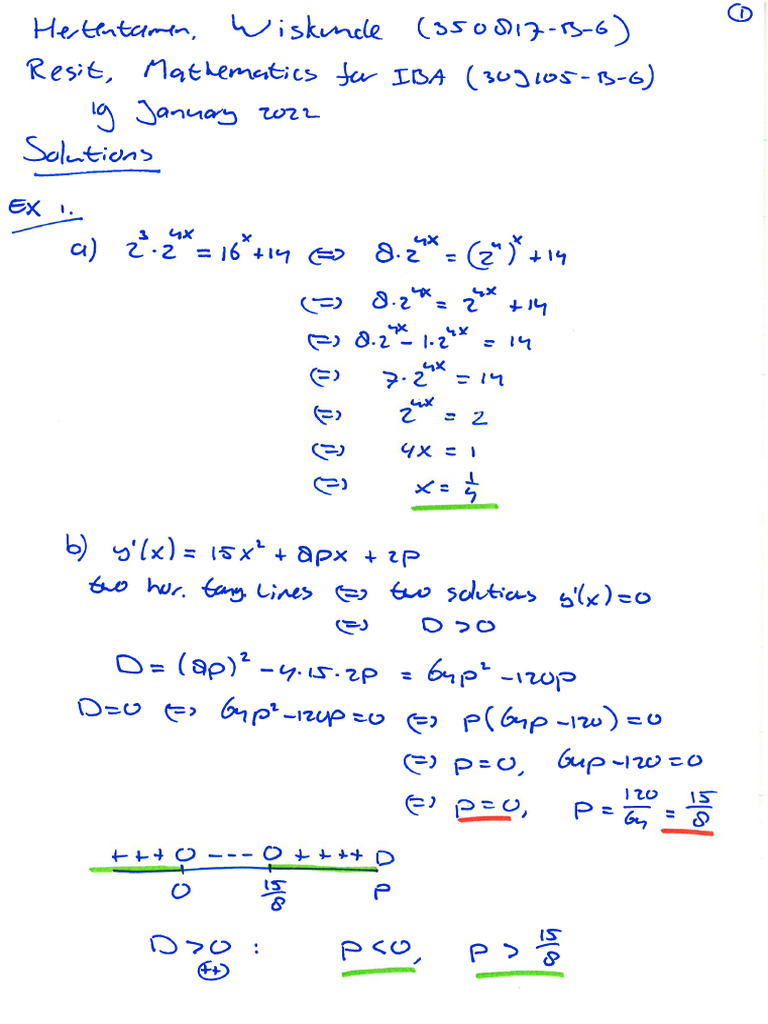 ①
Hertentamen, Wiskunde (350817-B-6)
Resit, Mathematics for IBA (309105-B-6)
19 January 2022
Solutions
EX 1.
a) 2³·2⁴ˣ = 16ˣ+14 ⇔ 8·2⁴ˣ = (2⁴)ˣ+14
⇔ 8·2⁴ˣ = 2⁴ˣ+14
⇔ 8·2⁴ˣ − 1·2⁴ˣ = 14
⇔ 7·2⁴ˣ = 14
⇔ 2⁴ˣ = 2
⇔ 4x = 1
⇔ x = 1/4
b) y'(x) = 15x² + 8px + 2p
two hor. tang. lines ⇔ two solutions y'(x)=0
⇔ D>0
D = (8p)² − 4·15·2p = 64p² − 120p
D=0 ⇔ 64p²−120p=0 ⇔ p(64p−120)=0
⇔ p=0, 64p−120=0
⇔ p=0, p = 120/64 = 15/8
+++0---0++++ D
0 15/8 p
D>0 : p<0, p > 15/8
(++)